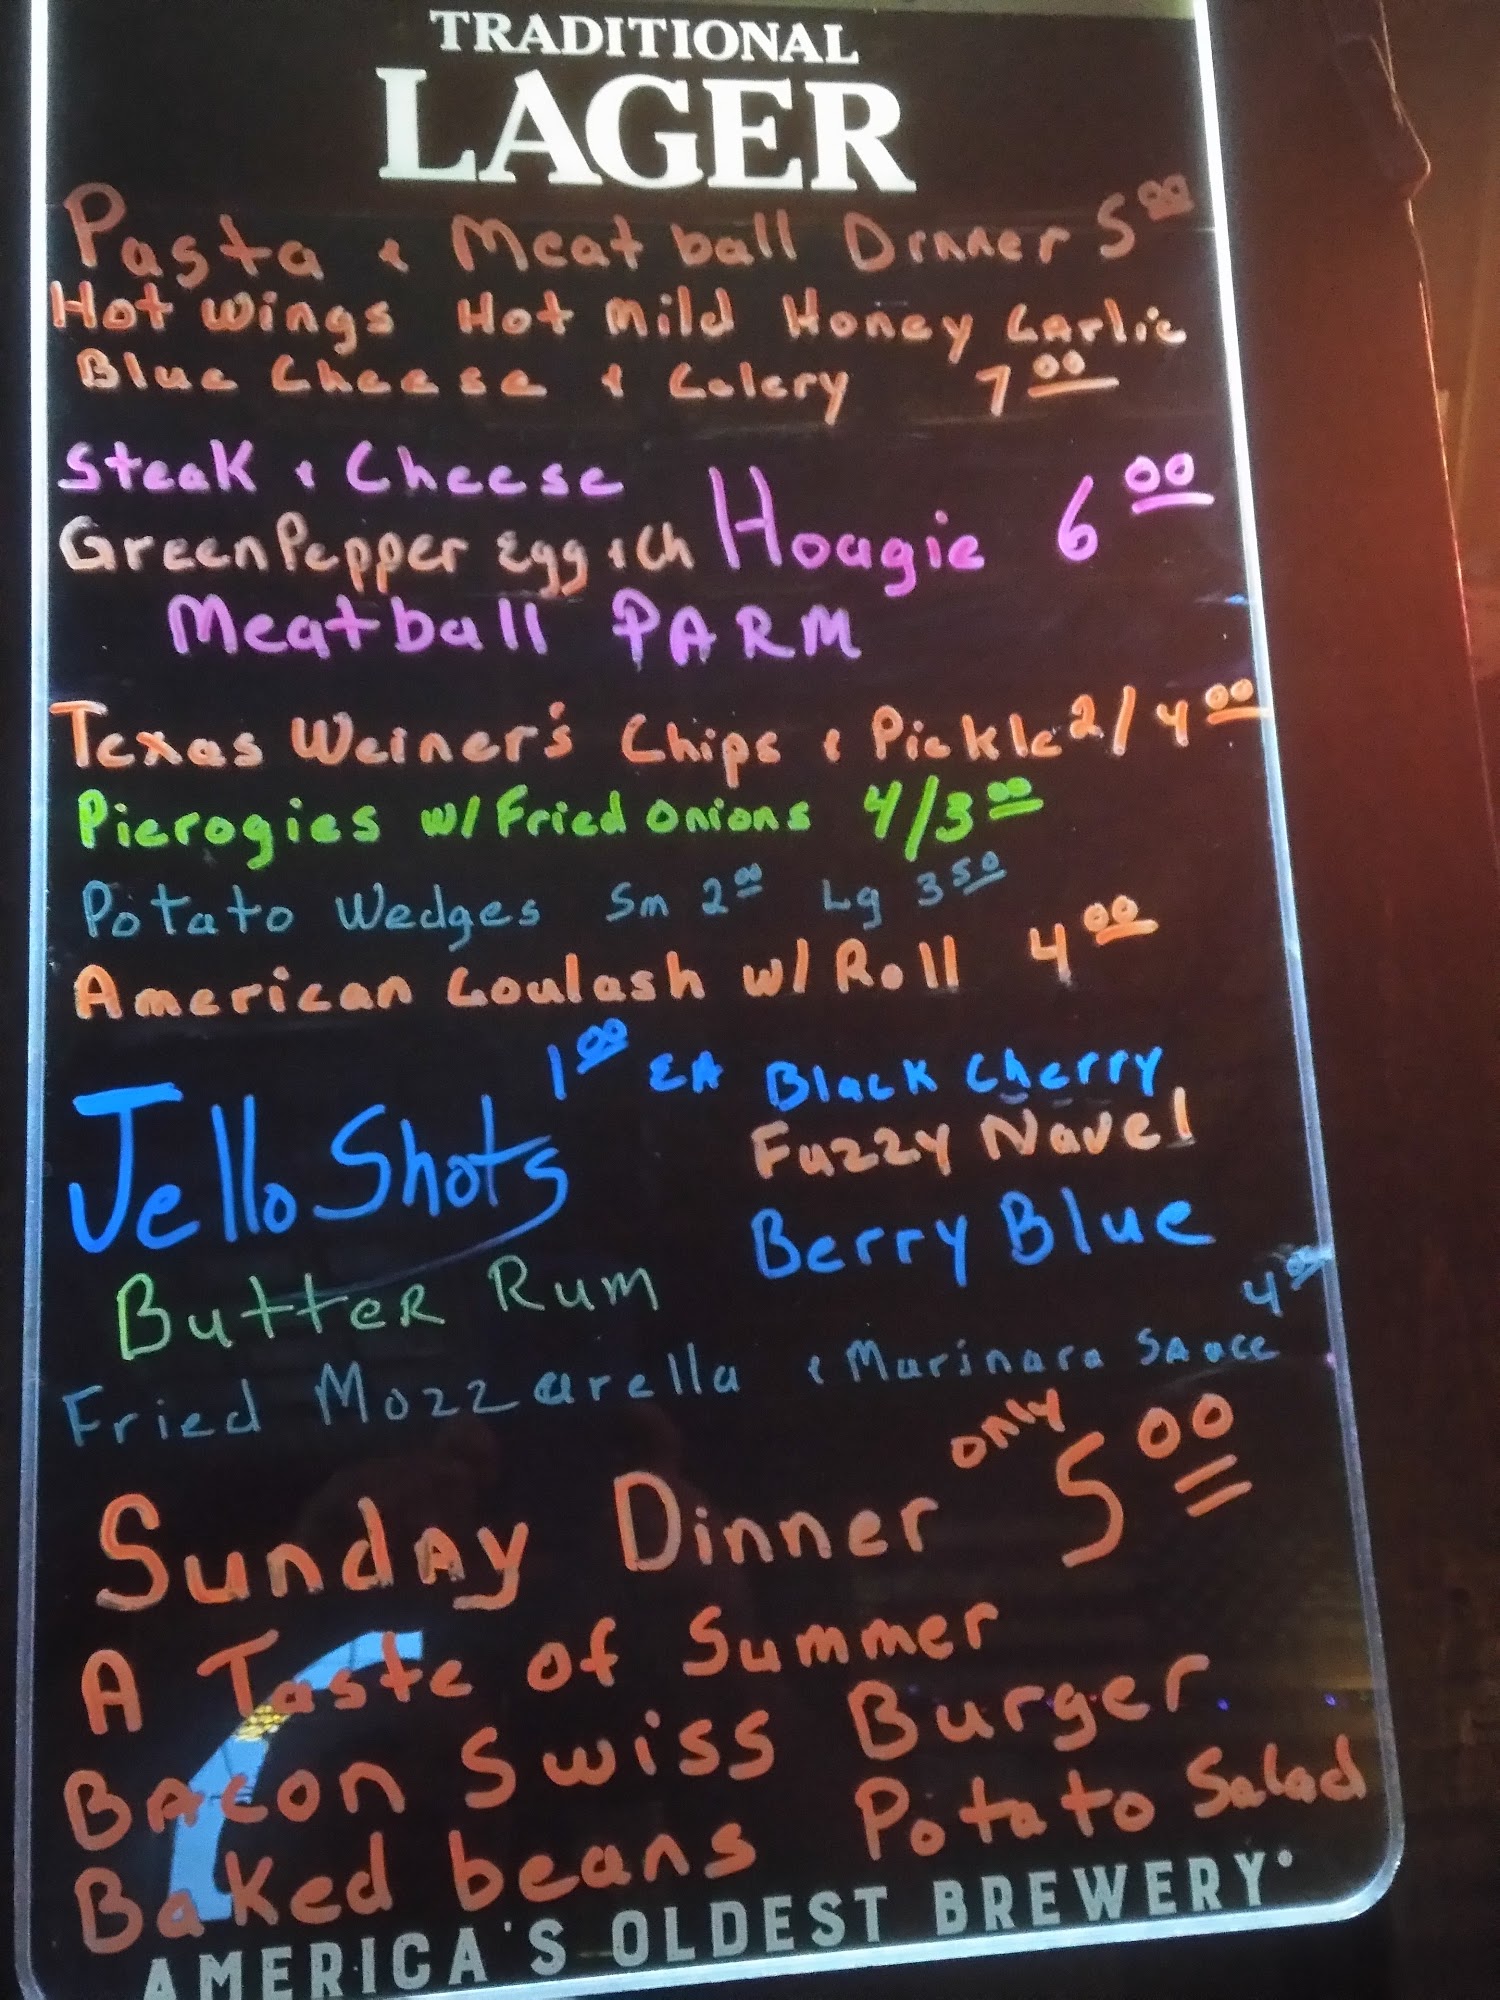 TRADITIONAL
LAGER
Pasta & Meatball Dinner 5.00
Hot Wings Hot Mild Honey Garlic
Blue Cheese & Celery 7.00
Steak & Cheese
Green Pepper Egg & Ch Hoagie 6.00
Meatball PARM
Texas Weiner's Chips & Pickle 2/4.00
Pierogies w/ Fried Onions 4/3.00
Potato Wedges Sm 2.00 Lg 3.50
American Goulash w/ Roll 4.00
Jello Shots 1.00 EA Black Cherry
Fuzzy Navel
Berry Blue
Butter Rum
Fried Mozzarella & Marinara Sauce 4.00
Sunday Dinner only 5.00
A Taste of Summer
Bacon Swiss Burger
Baked beans Potato Salad
AMERICA'S OLDEST BREWERY